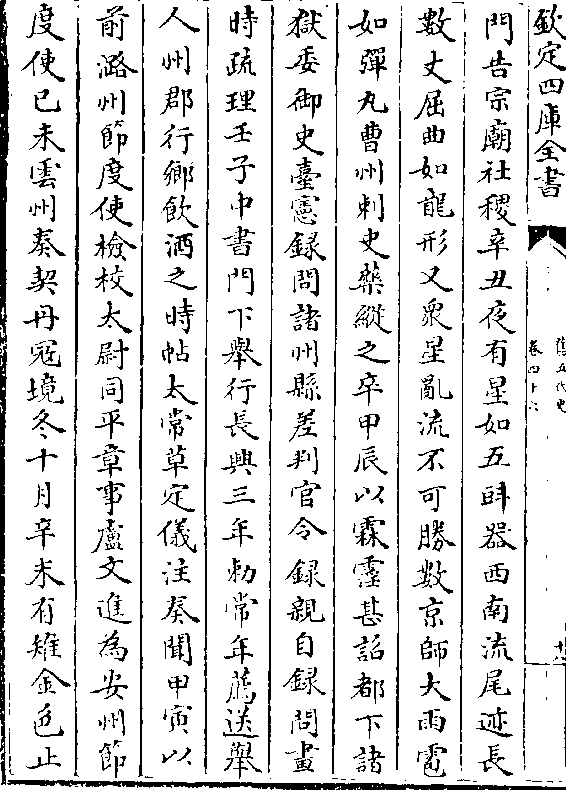 欽定四庫全書
舊五代史
卷四十六
門告宗廟社稷辛丑夜有星如五㪷器西南流尾迹長
數丈屈曲如龍形又衆星亂流不可勝數京師大雨雹
如彈丸曹州刺史藥縱之卒甲辰以霖霪甚詔都下諸
獄委御史臺憲録問諸州縣差判官令録親自録問畫
時疏理壬子中書門下舉行長興三年勅常年薦送舉
人州郡行鄉飲酒之時帖太常草定儀注奏聞甲寅以
前潞州節度使檢校太尉同平章事盧文進為安州節
度使已未雲州奏契丹冦境冬十月辛未有雉金色止